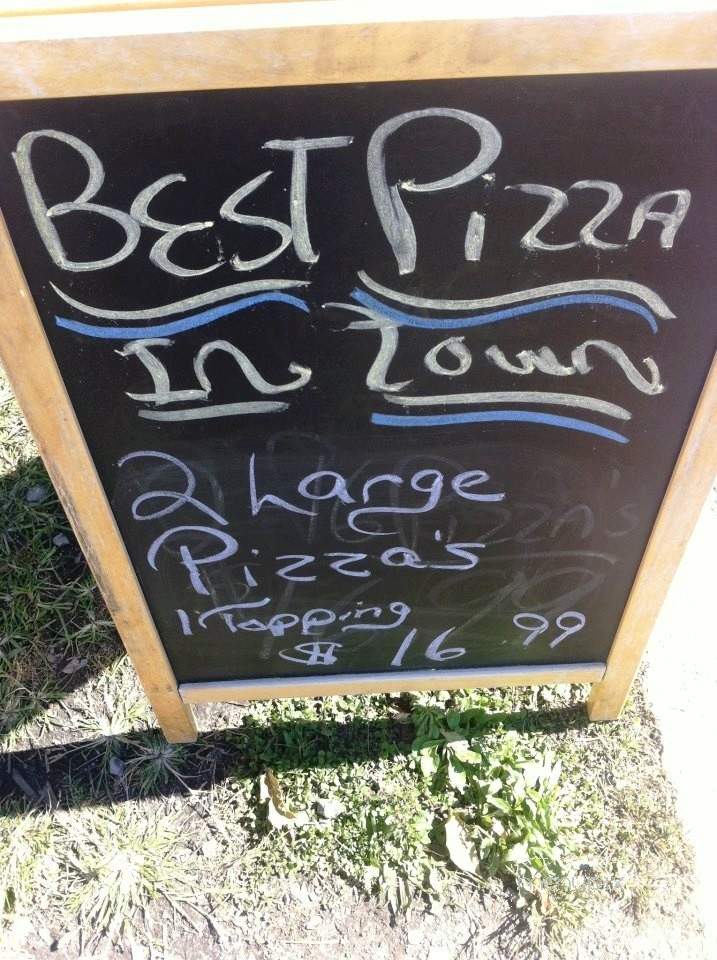 BEST PIZZA
In Town
2 Large
Pizza's
1 Topping
$ 16.99